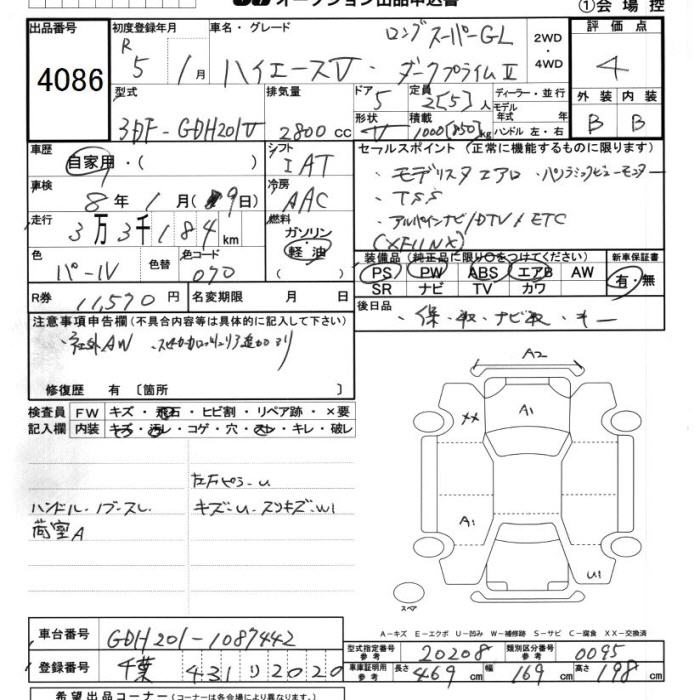 オークション出品申込書
①会場控
出品番号
4086
初度登録年月
R
5 / 1月
車名・グレード
ロングスーパーGL
ハイエースV・ダークプライムⅡ
2WD
・
4WD
評価点
4
型式
3DF-GDH201V
排気量
2800cc
ドア
5
形状
V
定員
2[5]人
積載
1000[850]kg
ディーラー・並行
モデル
年式 年
ハンドル 左・右
外装
B
内装
B
車歴
自家用・( )
シフト
IAT
セールスポイント (正常に機能するものに限ります)
・モデリスタエアロ ・パノラミックビューモニター
・TSS
・アルパインナビ/DTV/ETC
(XF11NX)
車検
8年1月(9日)
冷房
AAC
走行
3万3千184km
燃料
ガソリン
軽油
( )
色
パールV
色替
色コード
070
装備品(純正品に限り○をつけてください)
PS PW ABS エアB AW
SR ナビ TV カワ
新車保証書
有・無
R券
11,570円
名変期限 月 日
後日品
・保・取・ナビ取・キー
注意事項申告欄(不具合内容等は具体的に記入して下さい)
・社外AW
修復歴 有 [箇所 ]
検査員
記入欄
FW キズ・飛石・ヒビ割・リペア跡・×要
内装 キズ・汚レ・コゲ・穴・スレ・キレ・破レ
左Fピラーu
ハンドル・ノブースレ
キズ-u-スリキズ-w1
荷室A
A2
XX
A1
A1
U1
スペア
A−キズ E−エクボ U−凹み W−補修跡 S−サビ C−腐食 XX−交換済
車台番号
GDH201-1087442
登録番号
千葉 431 り 2020
型式指定番号
参考
20208
類別区分番号
参考
0095
車庫証明用
参考
長さ 469cm 幅 169cm 高さ 198cm
希望出品コーナー(コーナーは各会場により異なります)